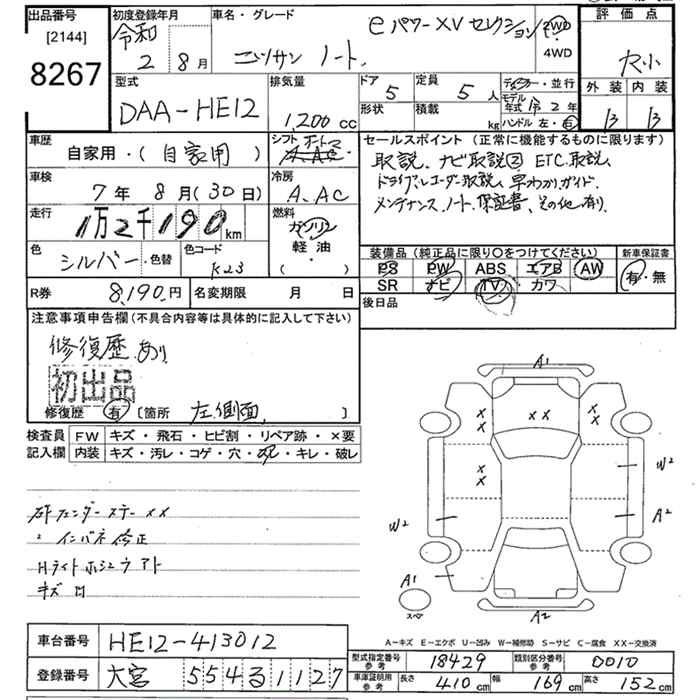 出品番号
[2144]
8267
初度登録年月
令和
2 8月
車名・グレード
ニッサン ノート
eパワーXVセレクション
2WD
4WD
評価点
外装 内装
B B
型式
DAA-HE12
排気量
1,200 cc
ドア 定員
5 5人
形状 積載
kg
ディーラー・並行
モデル年式 R2年
ハンドル 左・右
車歴
自家用・(自家用)
シフト オートマ
車検
7年 8月 (30日)
冷房
A.AC
走行
1万2千190km
燃料
ガソリン
軽油
( )
色
シルバー・色替
色コード
K23
セールスポイント (正常に機能するものに限ります)
取説、ナビ取説② ETC取説
ドライブレコーダー取説 早わかりガイド
メンテナンスノート 保証書、その他有り
装備品 (純正品に限り〇をつけてください)
PS PW ABS エアB AW
SR ナビ TV カワ
新車保証書
有・無
後日品
R券
8,190円
名変期限 月 日
注意事項申告欄 (不具合内容等は具体的に記入して下さい)
修復歴あり
初出品
修復歴 有 [箇所 左側面 ]
検査員
記入欄
FW キズ・飛石・ヒビ割・リペア跡・×要
内装 キズ・汚レ・コゲ・穴・スレ・キレ・破レ
フェンダーステー XX
インパネ修正
Hライトホシュウアト
キズ
A1
XX
XX
XX
XX
W2
A2
W2
A1
スペア
A2
A-キズ E-エクボ U-凹み W-補修跡 S-サビ C-腐食 XX-交換済
車台番号
HE12-413012
登録番号
大宮 554 る 1127
型式指定番号
参考
18429
類別区分番号
参考
0010
車庫証明用
参考
長さ 410cm 幅 169cm 高さ 152cm